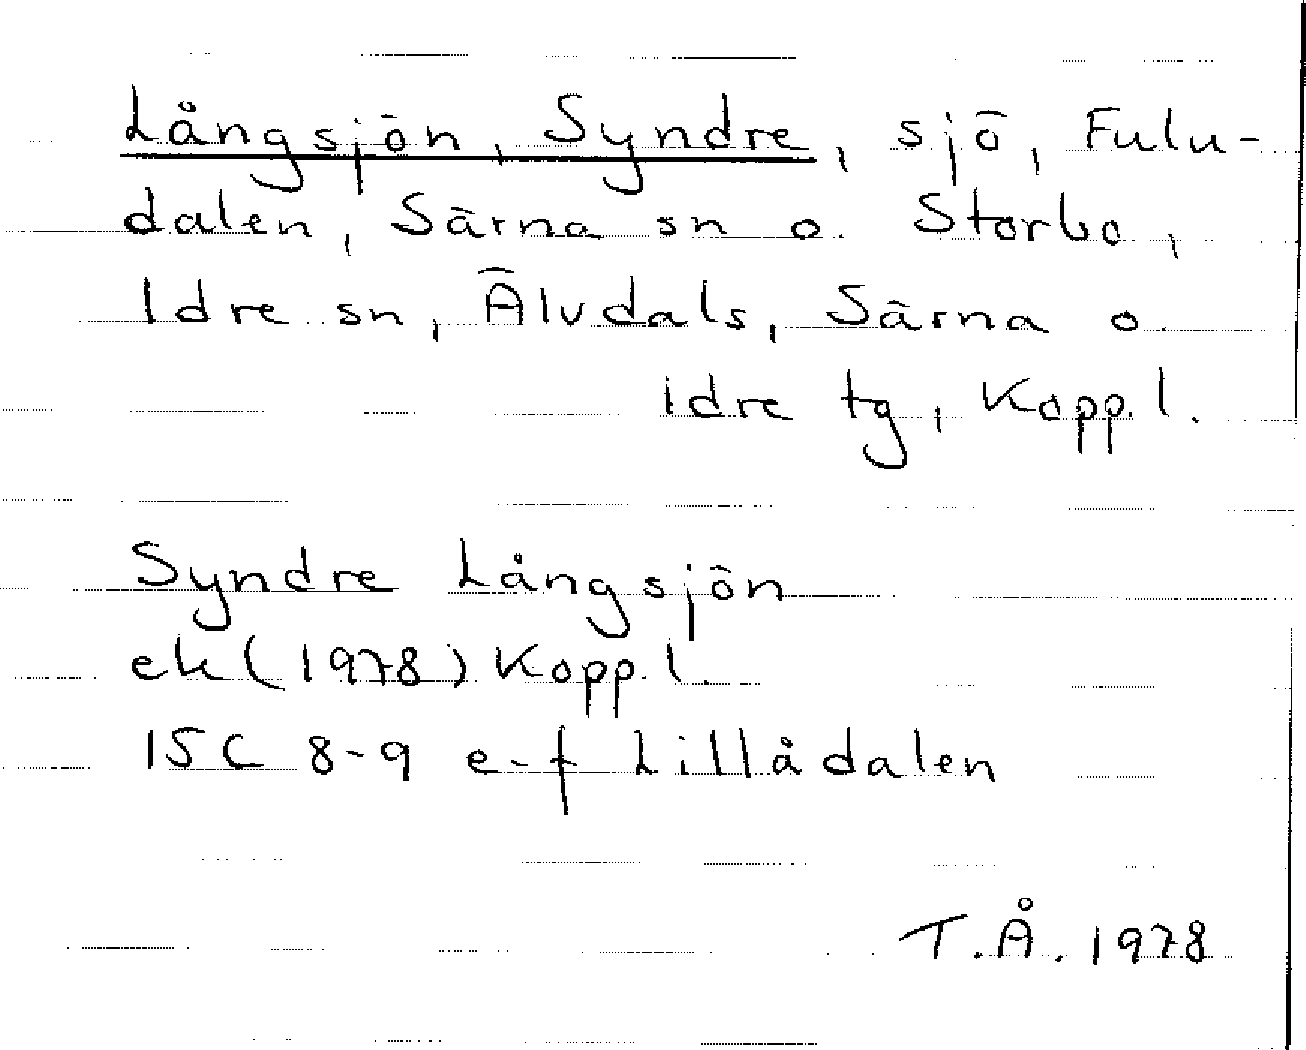 Långsjön, Syndre, sjö, Fulu-
dalen, Särna sn o. Storbo,
Idre sn, Älvdals, Särna o.
Idre tg, Kopp. l.
Syndre Långsjön
ek (1978) Kopp. l.
15C 8-9 e-f Lillådalen
T.Å. 1978